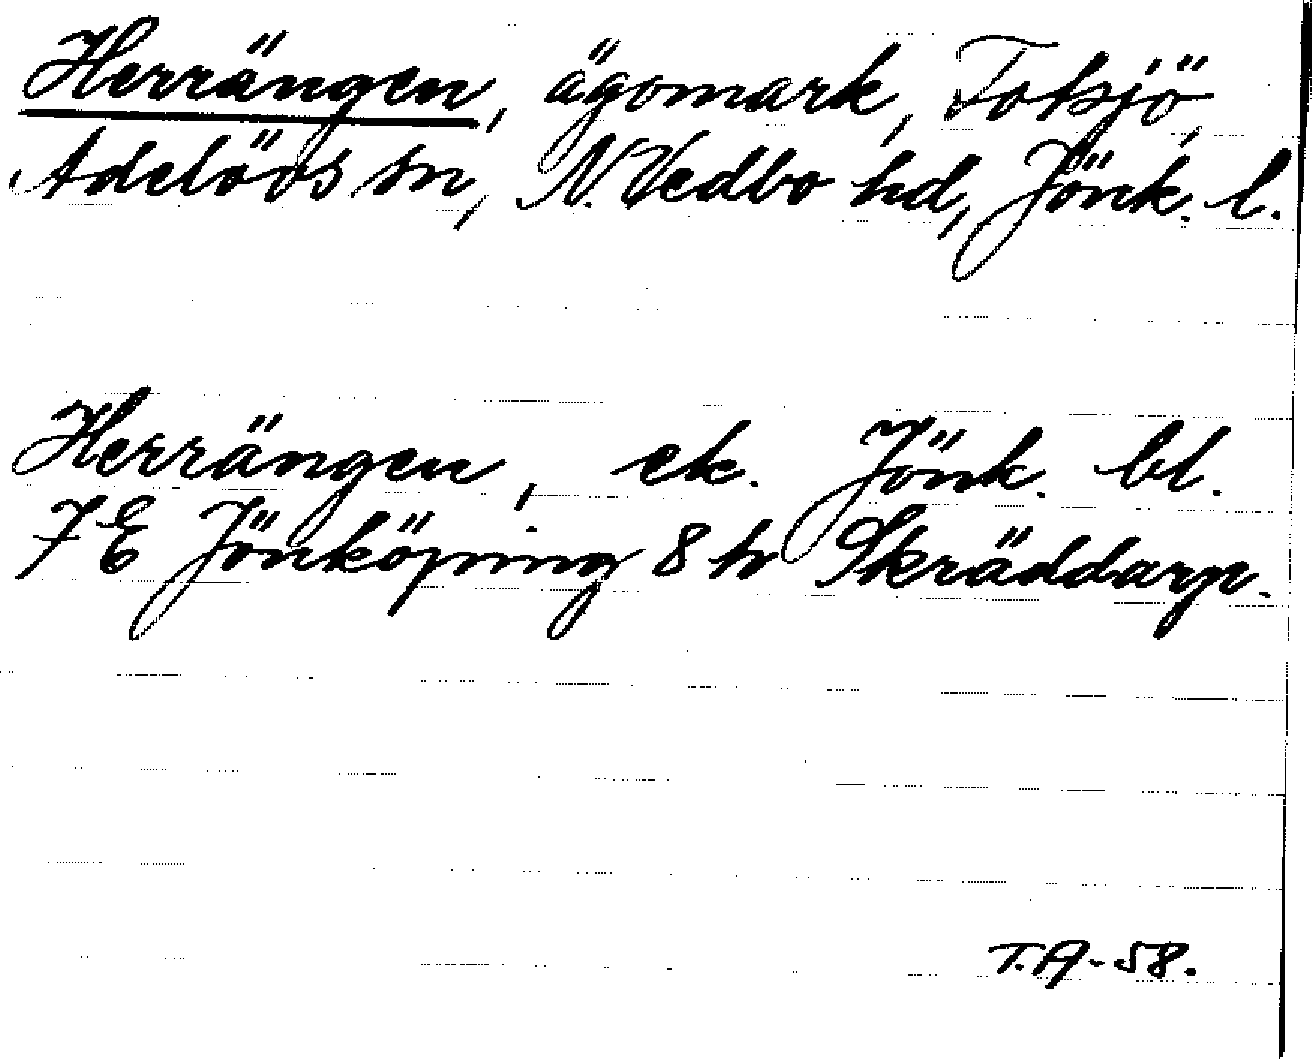 Herrängen, ägomark, Totsjö,
Adelövs sn, N. Vedbo hd, Jönk. l.
Herrängen, ek. Jönk. bl.
7E Jönköping 8 h Skräddarp.
T.A-58.